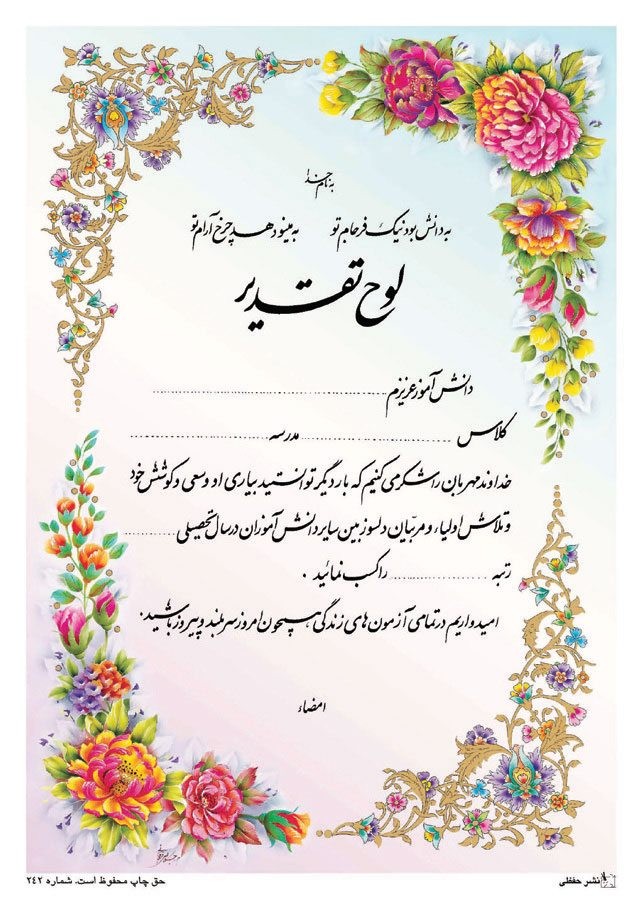 به نام خدا
به دانش بود نیک فرجام تو به مینو دهد چرخ آرام تو
لوح تقدیر
دانش آموز عزیزم ........................................
کلاس ........................ مدرسه ........................
خداوند مهربان را شکر می کنیم که بار دیگر توانستید بیاری او و سعی و کوشش خود
و تلاش اولیاء و مربّیان دلسوز بین سایر دانش آموزان در سال تحصیلی ..............
رتبه .................. را کسب نمائید .
امیدواریم در تمامی آزمون های زندگی همچون امروز سربلند و پیروز باشید .
امضاء
نشر حفظی
حق چاپ محفوظ است. شماره ۲۴۲